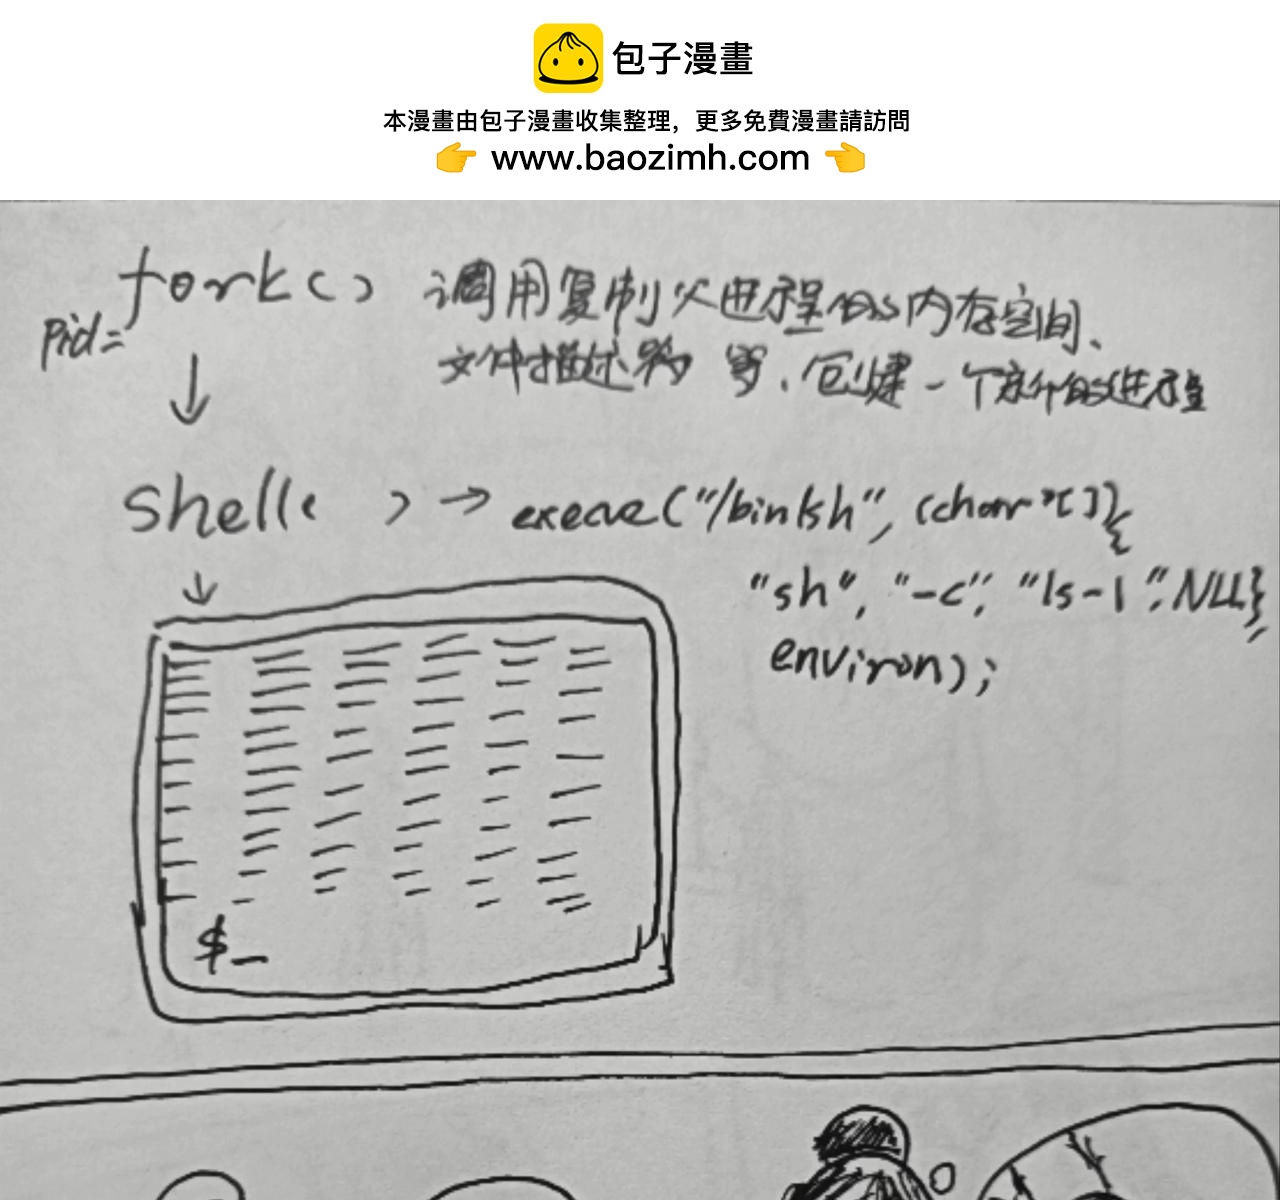 包子漫畫
本漫畫由包子漫畫收集整理，更多免費漫畫請訪問
👉 www.baozimh.com 👈
fork() 调用复制父进程的内存空间、
pid=
文件描述符 等，创建一个新的进程
shell( ) → execve("/bin/sh", (char*[]){
"sh", "-c", "ls-l", NULL},
environ);
$_